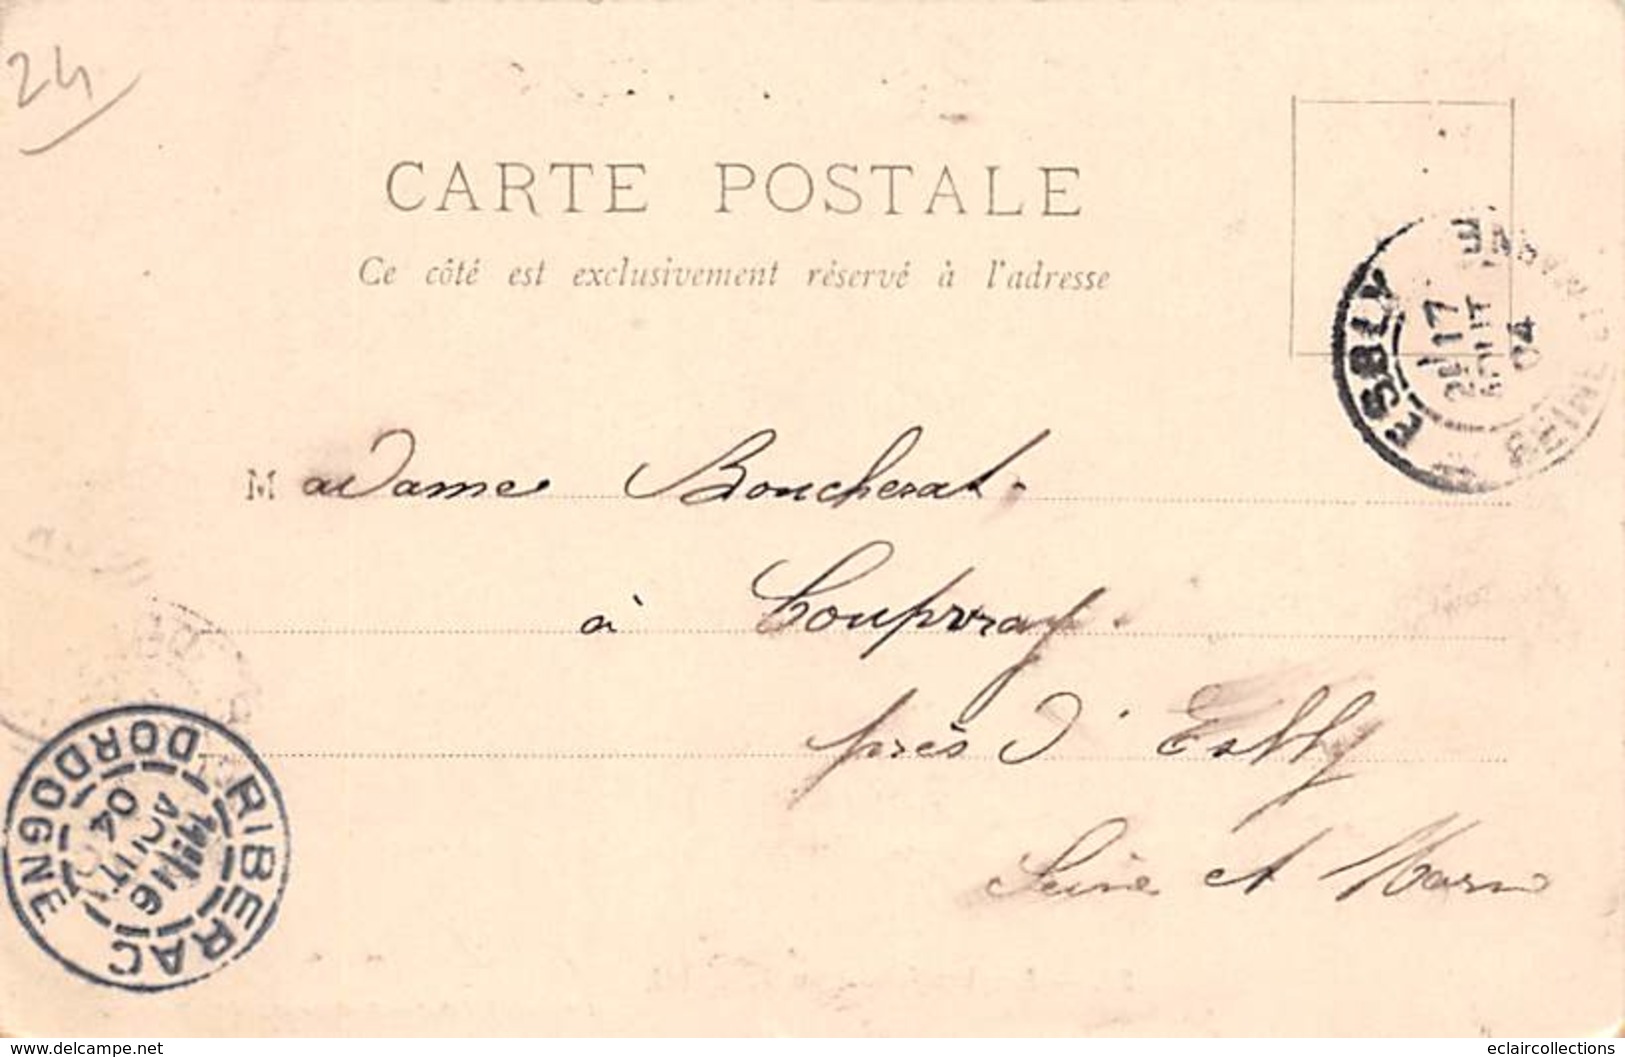 24
CARTE POSTALE
Ce côté est exclusivement réservé à l'adresse
ESBLY
SEINE ET MARNE
17
AOUT
04
Madame Boucherat
à Coupvray
près d'Esbly
Seine et Marne
RIBERAC
DORDOGNE
16
AOUT
04
www.delcampe.net
eclaircollections